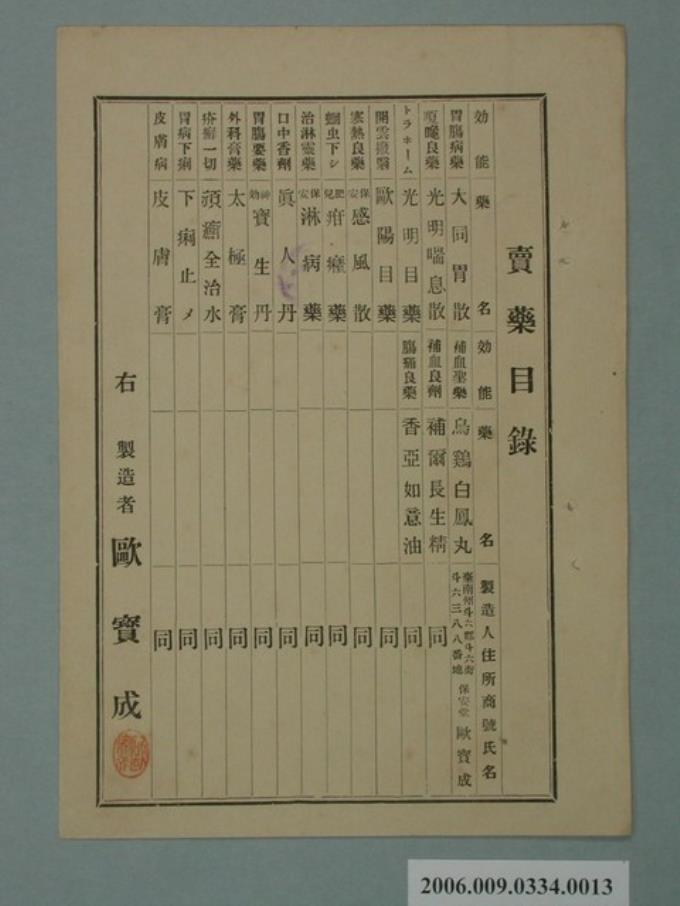 賣藥目錄
効能 藥名 効能 藥名 製造人住所商號氏名
胃腸病藥 大同胃散 補血聖藥 烏鷄白鳳丸 臺南州斗六郡斗六街斗六三八八番地 保安堂 歐寶成
光明喘息散 補血良劑 補爾長生精 同
トラホーム 光明目藥 腸痛良藥 香亞如意油 同
開雲撥翳 歐陽目藥 同
寒熱良藥 保安感風散 同
蛔虫下シ 肥兒疳癪藥 同
治淋靈藥 保安淋病藥 同
口中香劑 眞人丹 同
胃腸要藥 神効寶生丹 同
外科膏藥 太極膏 同
疥癬一切 頑癬全治水 同
胃病下痢 下痢止メ 同
皮膚病 皮膚膏 同
右 製造者 歐寶成
2006.009.0334.0013